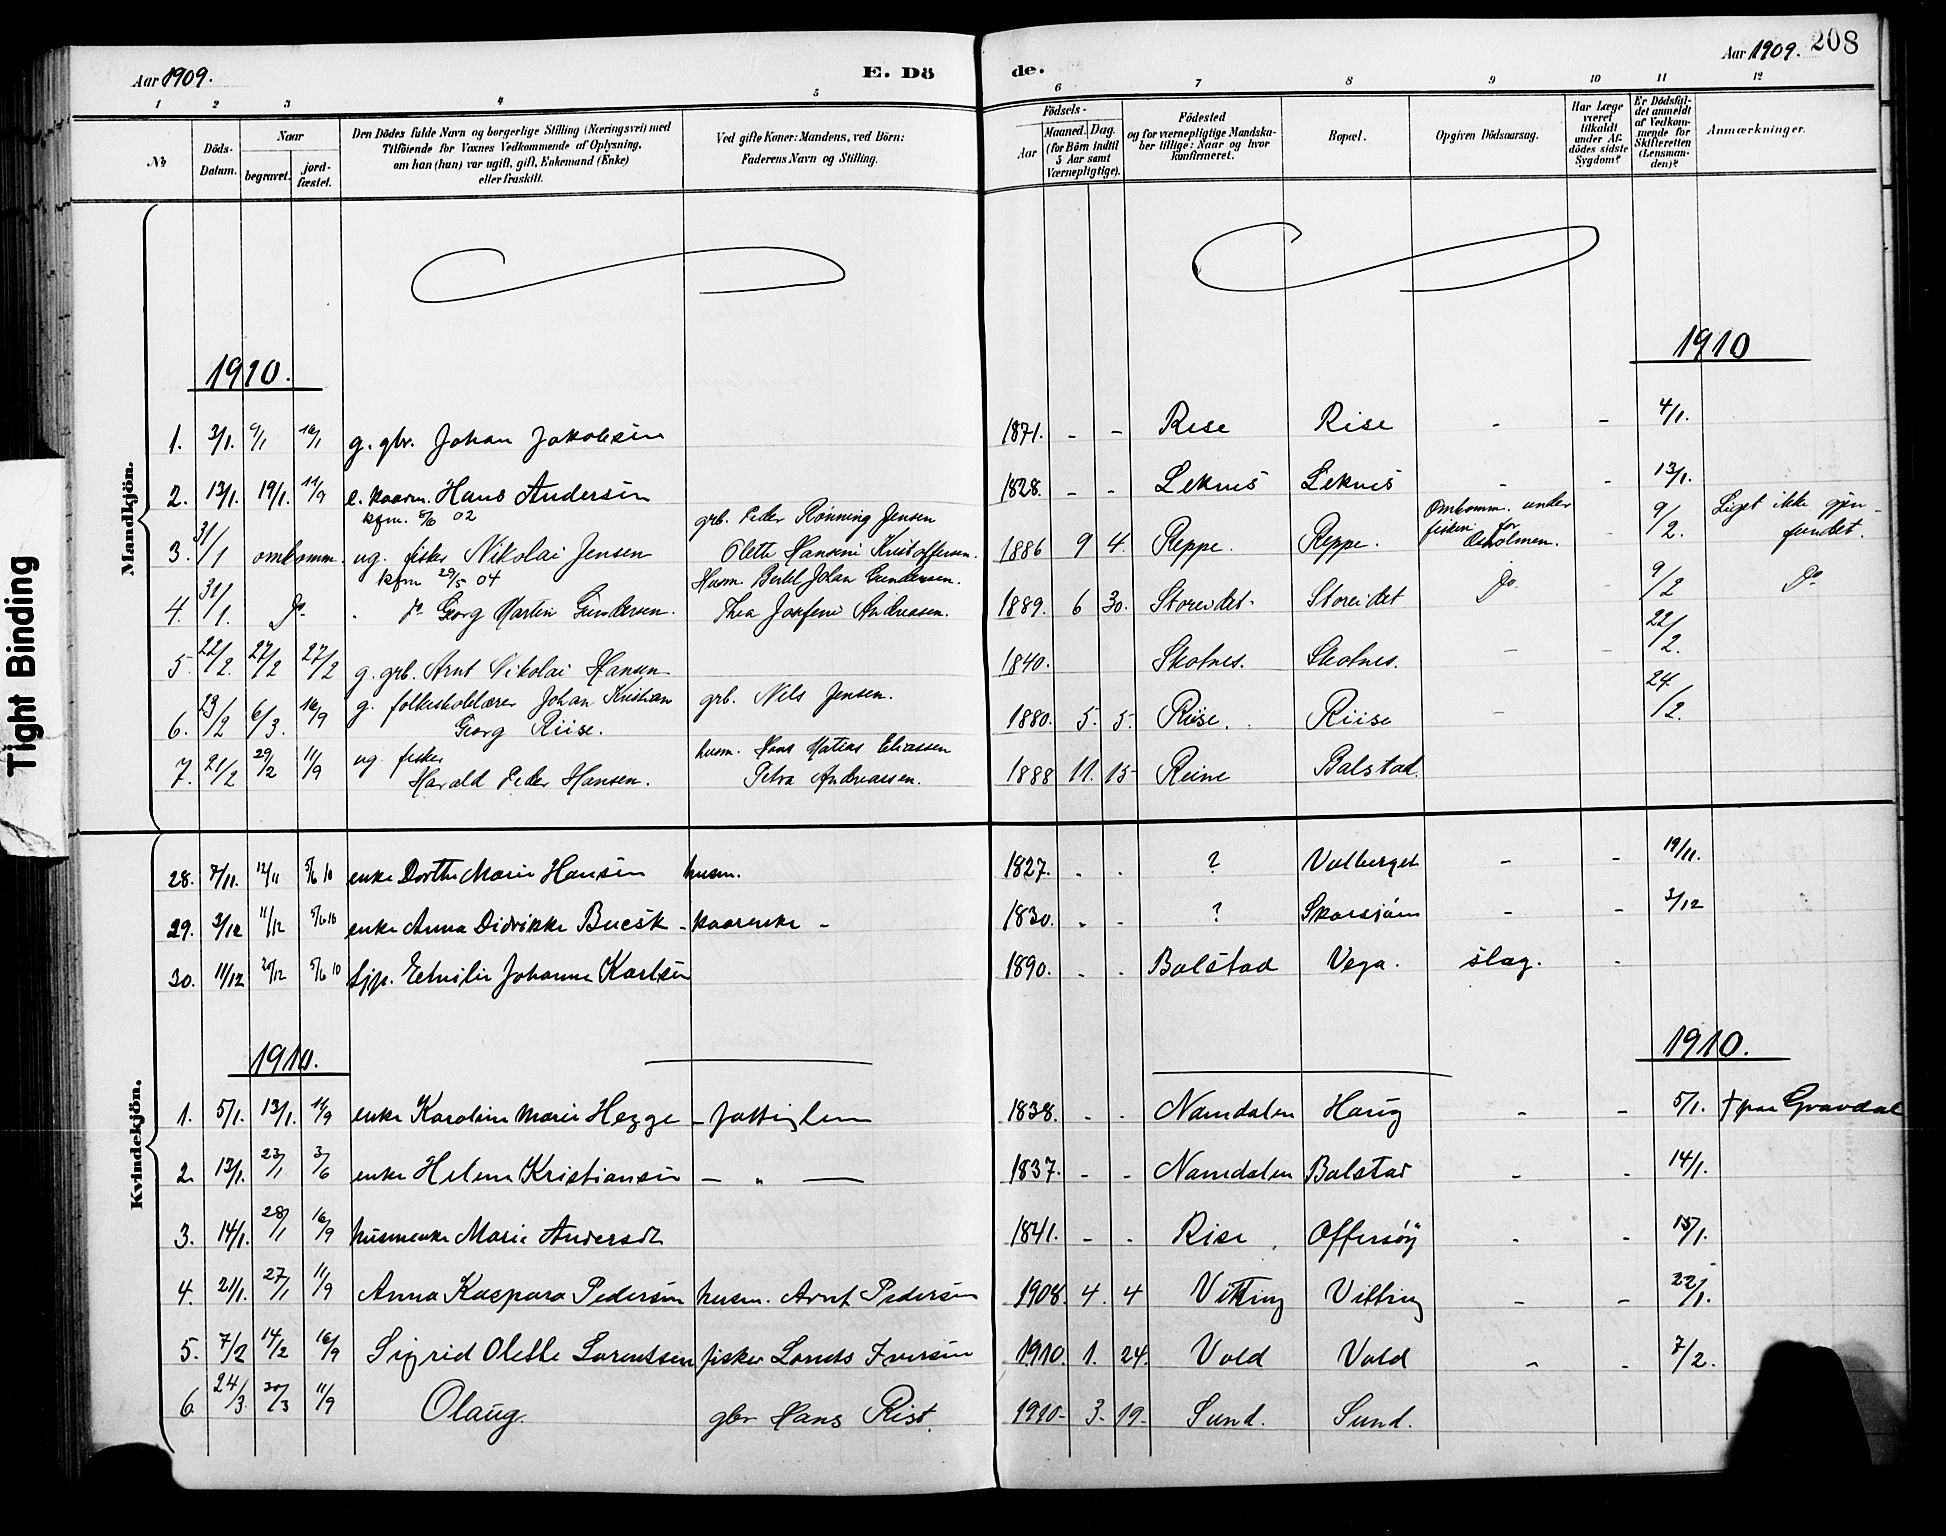 Aar 1909.
E. Dö
de.
Aar 1909. 208
1 2 3 4 5 6 7 8 9 10 11 12
No
Döds-Datum.
Naar
begravet.
jord-fæstet.
Den Dödes fulde Navn og borgerlige Stilling (Næringsvei) med
Tilföiende for Voxnes Vedkommende af Oplysning,
om han (hun) var ugift, gift, Enkemand (Enke)
eller fraskilt.
Ved gifte Koner: Mandens, ved Börn:
Faderens Navn og Stilling.
Födsels-
Aar
Maaned. Dag.
(for Börn indtil
5 Aar samt
Værnepligtige).
Födested
og for værnepligtige Mandska-
ber tillige: Naar og hvor
konfirmeret.
Bopæl.
Opgiven Dödsaarsag.
Har Læge
været
tilkaldt
under Af-
dödes sidste
Sygdom?
Er Dödsfal-
det anmeldt
af Vedkom-
mende for
Skifteretten
(Lensman-
den)?
Anmærkninger.
Mandkjön.
1910. 1910
1. 3/1. 9/1 16/1 g. gbr. Johan Jakobsen 1871. - - Rise Rise - - 4/1.
2. 13/1. 19/1. 11/9 e. kaarm. Hans Andersen 1828. - - Leknes Leknes - - 13/1.
kfm. 5/6 02 grb. Peder Rönning Jensen Omkomm. under Liget ikke gjen-
3. 31/1 omkomm. ug. fisker Nikolai Jensen Olette Hansine Kristoffersen. 1886 9 4. Reppe. Reppe. fisken for - 9/2. fundet.
kfm 29/5 04 Husm. Bertel Johan Gundersen.
4. 31/1. Do. Do Georg Martin Gundersen. Thea Josefine Andreasen. 1889. 6 30. Storeidet. Storeidet Do. - 9/2 Do
5 22/2. 27/2 27/2 g. grb. Arnt Nikolai Hansen 1840. Skotnes. Skotnes. - - 22/2.
6. 23/2 6/3. 16/9 g. folkeskolelærer Johan Kristian grb. Nils Jensen. 1880. 5. 5. Riise. Riise - 24/2.
Georg Riise.
7. 21/2 29/2 11/9 ug. fisker husm. Hans Matias Eliassen 1888 11. 15 Reine Balstad
Harald Peder Hansen. Petra Andreassen.
Kvindekjön.
28. 7/11. 12/11 5/6 10 enke Dorthe Marie Hansen husm. 1827. - - ? Valberget - - 19/11.
29. 3/12 11/12 5/6 10 enke Anna Didrikke Buesk - kaarenke - 1830. - - ? Skarsjöen - - 3/12
30. 11/12 20/12 5/6 10 tjp. Emilie Johanne Karlsen 1890. - - Balstad Vega. slag. -
1910. 1910.
1. 5/1. 13/1. 11/9 enke Karoline Marie Hegge - fattiglem 1838. - - Namdalen Haug - - 5/1. † paa Gravdal
2. 13/1. 23/1 3/6 enke Helene Kristiansen - " - 1837. - - Namdalen Balstad - - 14/1.
3. 14/1. 28/1 16/9 husmenke Marie Andersdt 1841. - - Rise Offersöy - - 15/1.
4. 21/1. 27/1 11/9 Anna Kaspara Pedersen husm. Arnt Pedersen 1908. 4. 4 Vitting Vitting - - 22/1.
5. 7/2 14/2 16/9 Sigrid Olette Lorentsen fisker Iversen 1910. 1. 24. Vold Vold - - 7/2.
6. 24/3. 30/3 11/9 Olaug. gbr Hans Rist. 1910- 3. 19. Sund. Sund.
Tight Binding